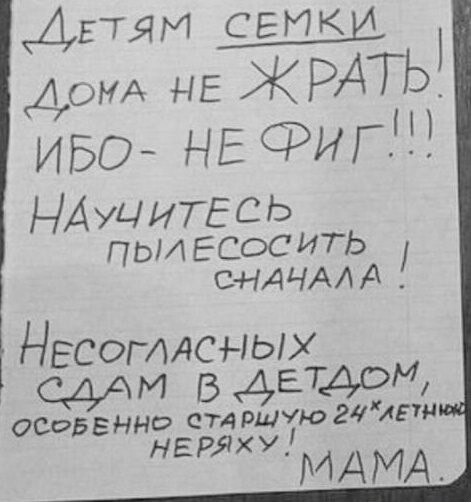 Детям семки
дома не ЖРАТЬ!
ИБО - НЕ ФИГ!!!
Научитесь
пылесосить
сначала!
Несогласных
сдам в детдом,
особенно старшую 24х летнюю
неряху!
МАМА.